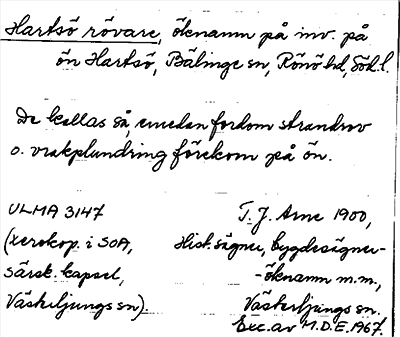 Hartsö rövare, öknamn på inv. på
ön Hartsö, Bälinge sn, Rönö hd, Södl.
De kallas så, emedan fordom strandrov
o. vrakplundring förekom på ön.
ULMA 3147
(xerokop. i SOA,
särsk. kapsel,
Västerljungs sn).
T. J. Arne 1900,
Hist. sägner, bygdesägner-
-öknamn m.m.,
Västerljungs sn.
Exc. av M.D.E. 1967.